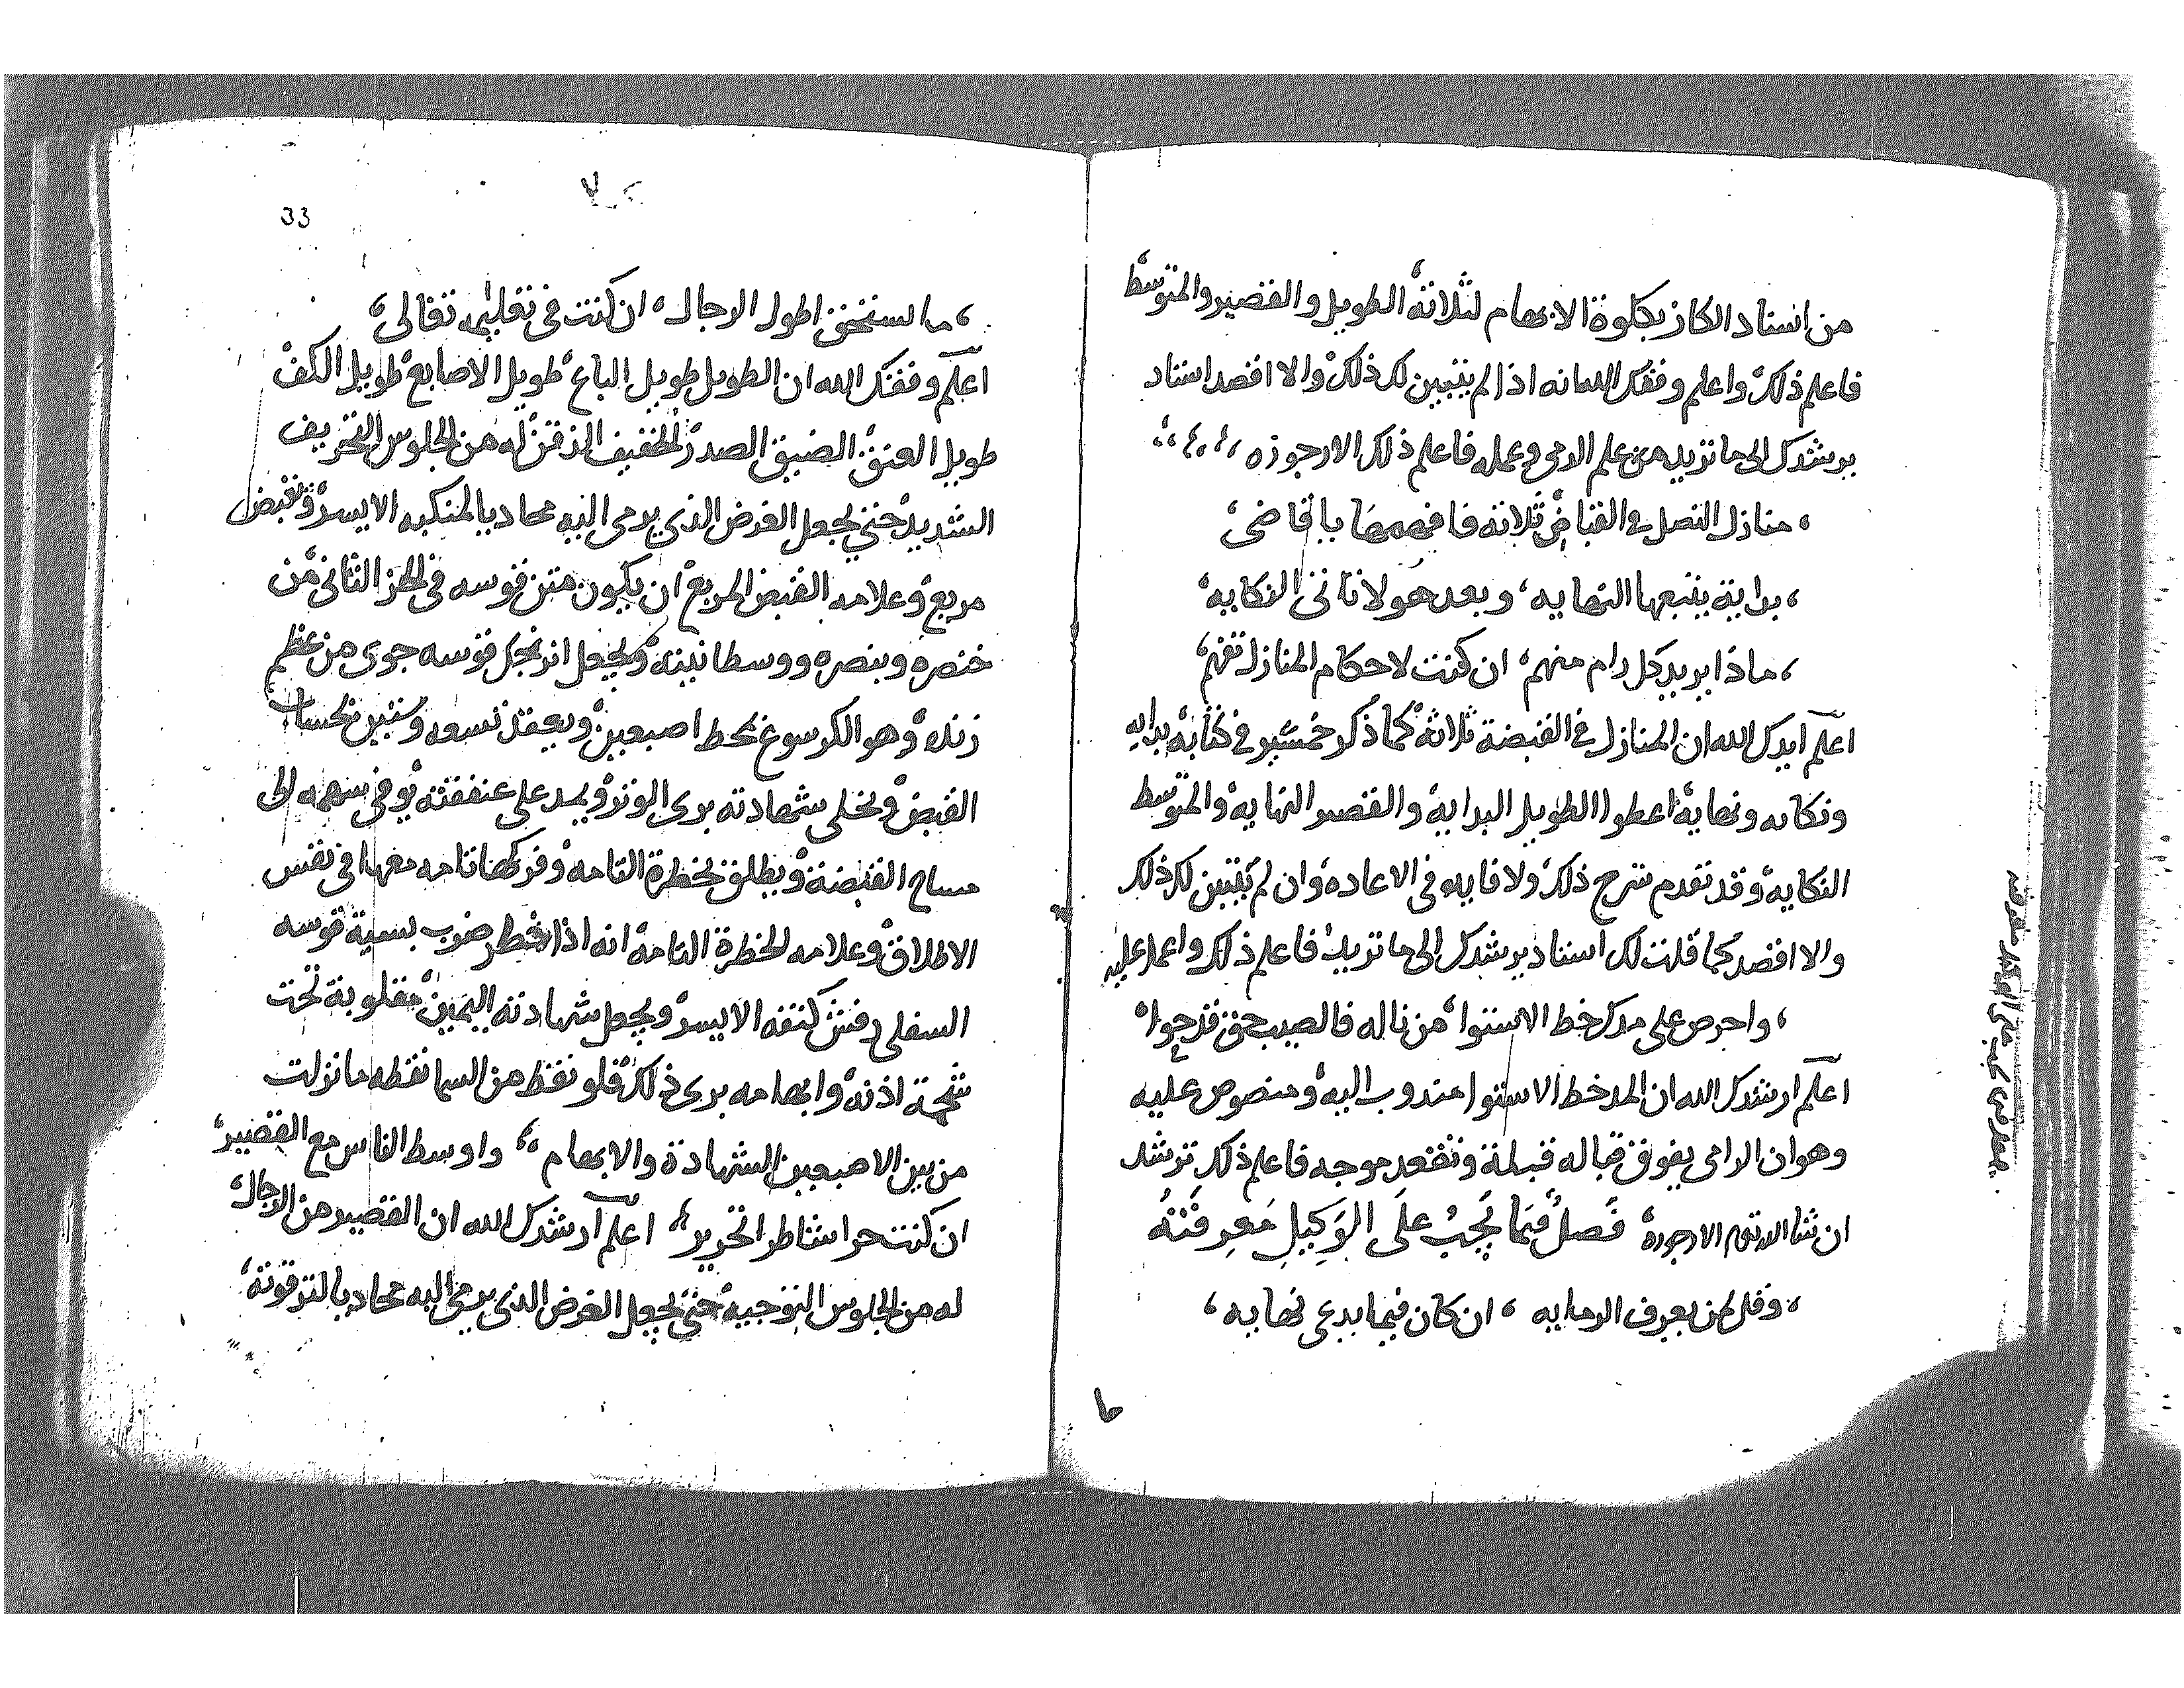 من استاد الكاز بكلوة الابهام لثلاثة الطويل والقصير والمتوسط
فاعلم ذلك واعلم وفقك الله انه اذا لم يتبين لك ذلك والا اقصد استاد
يرشدك الى ما تريد من علم الرمى وعمله فاعلم ذلك الارجوزه
منازل النصل فى القباض ثلاثة فافهمها يا قاضى
بداية يتبعها النهايه وبعد هولا تاتى النكايه
ماذا يريد كل رام منهم ان كنت لاحكام المنازل تفهم
اعلم ايدك الله ان المنازل فى القبضة ثلاثة كما ذكر فى كتابه بدايه
ونكايه ونهاية اعطوا الطويل البداية والقصير النهاية والمتوسط
النكاية وقد تقدم شرح ذلك ولا فايده فى الاعاده وان لم يتبين لك ذلك
والا اقصد كما قلت لك استاد يرشدك الى ما تريد فاعلم ذلك واعمل عليه
واحرص على مدك خط الاستوا من ناله فالصيب حق قد حوا
اعلم ارشدك الله ان المد خط الاستوا مندوب اليه ومنصوص عليه
وهو ان الرامى يفوق قباله قبلة وتقعد موجه فاعلم ذلك ترشد
ان شا الله تعالى الارجوزة فَصل فيمَا يَجِبُ علَى الوَكِيلِ مَعرِفَتهُ
وقل لمن يعرف الرمايه ان كان فيما يدعى نهايه
33
ما يستحق اطول الرجال ان كنت فى تعليمه تغالى
اعلم وفقك الله ان الطويل طويل الباع طويل الاصابع طويل الكف
طويل العنق الضيق الصدر الخفيف الذقن له من الجلوس التحريف
الشديد حتى يجعل الغرض الذى يرمى اليه محاديا لمنكبه الايسر ويقبض
مربع وعلامه القبض المربع ان يكون متن قوسه فى الحز الثانى من
خنصره وبنصره ووسطانيته ويجعل اترنجك قوسه جوى من عظم
زنده وهو الكرسوع بخط اصبعين ويعقد تسعه وستين بحساب
القبض ويخلى شهادته برى الوتر ويمد على عنفقته يوفى سهمه الى
مساح القبضة ويطلق بخطرة التامه وفركها تامه معها فى نفس
الاطلاق وعلامه الخطرة التامة انه اذا خطر ضرب بسية قوسه
السفلى رفش كتفه الايسر ويجعل شهادته اليمين مقلوبة تحت
شحمة اذنه وابهامه برى ذلك فلو نقط من السما نقطه ما نزلت
من بين الاصبعين الشهادة والابهام واوسط الناس مع القصير
ان كنت حرا شاطرا تحرير اعلم ارشدك الله ان القصير من الرجال
له من الجلوس التوجيه حتى يجعل الغرض الذى يرمى اليه محاديا لترقوته